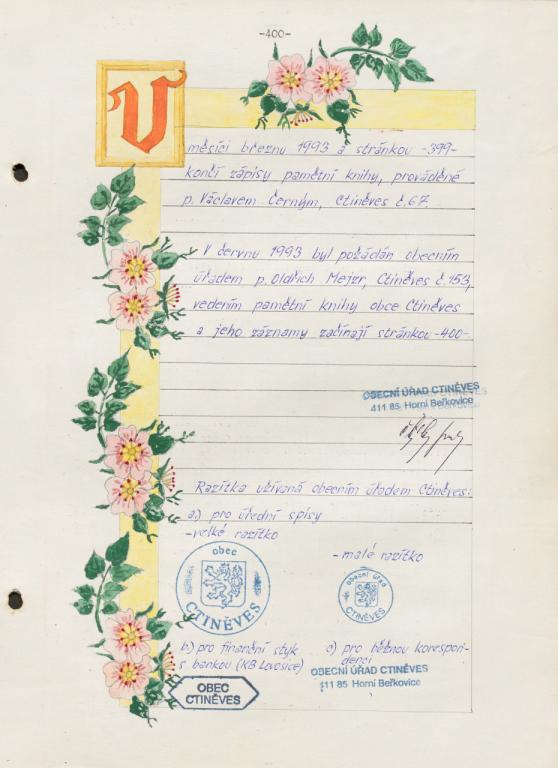 -400-
V
měsíci březnu 1993 a stránkou -399-
končí zápisy pamětní knihy, prováděné
p. Václavem Černým, Ctiněves č. 67.
V červnu 1993 byl požádán obecním
úřadem p. Oldřich Mejzr, Ctiněves č. 153,
vedením pamětní knihy obce Ctiněves
a jeho záznamy začínají stránkou -400-
OBECNÍ ÚŘAD CTINĚVES
411 85 Horní Beřkovice
Razítka užívaná obecním úřadem Ctiněves:
a.) pro úřední spisy
-velké razítko
-malé razítko
obec
CTINĚVES
Obecní úřad
CTINĚVES
b.) pro finanční styk
s bankou (KB Lovosice)
c) pro běžnou korespon-
denci
OBECNÍ ÚŘAD CTINĚVES
411 85 Horní Beřkovice
OBEC
CTINĚVES